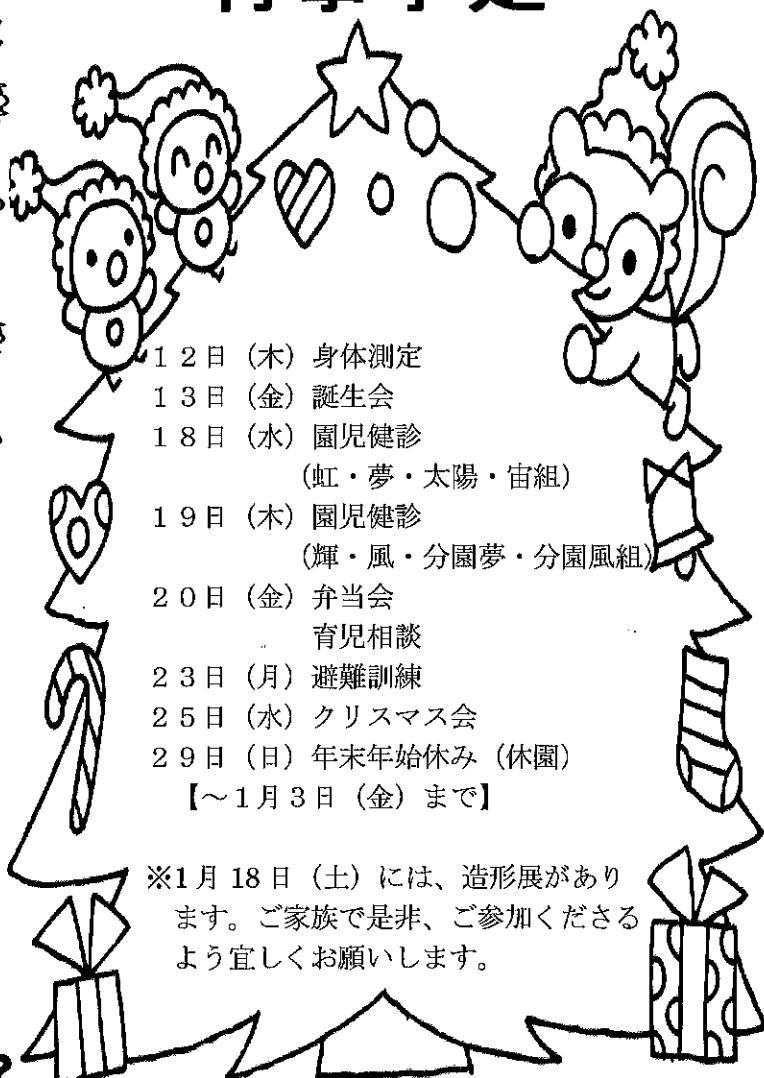 行事予定
12日（木）身体測定
13日（金）誕生会
18日（水）園児健診
（虹・夢・太陽・宙組）
19日（木）園児健診
（輝・風・分園夢・分園風組）
20日（金）弁当会
育児相談
23日（月）避難訓練
25日（水）クリスマス会
29日（日）年末年始休み（休園）
【～1月3日（金）まで】
※1月18日（土）には、造形展があり
ます。ご家族で是非、ご参加くださる
よう宜しくお願いします。